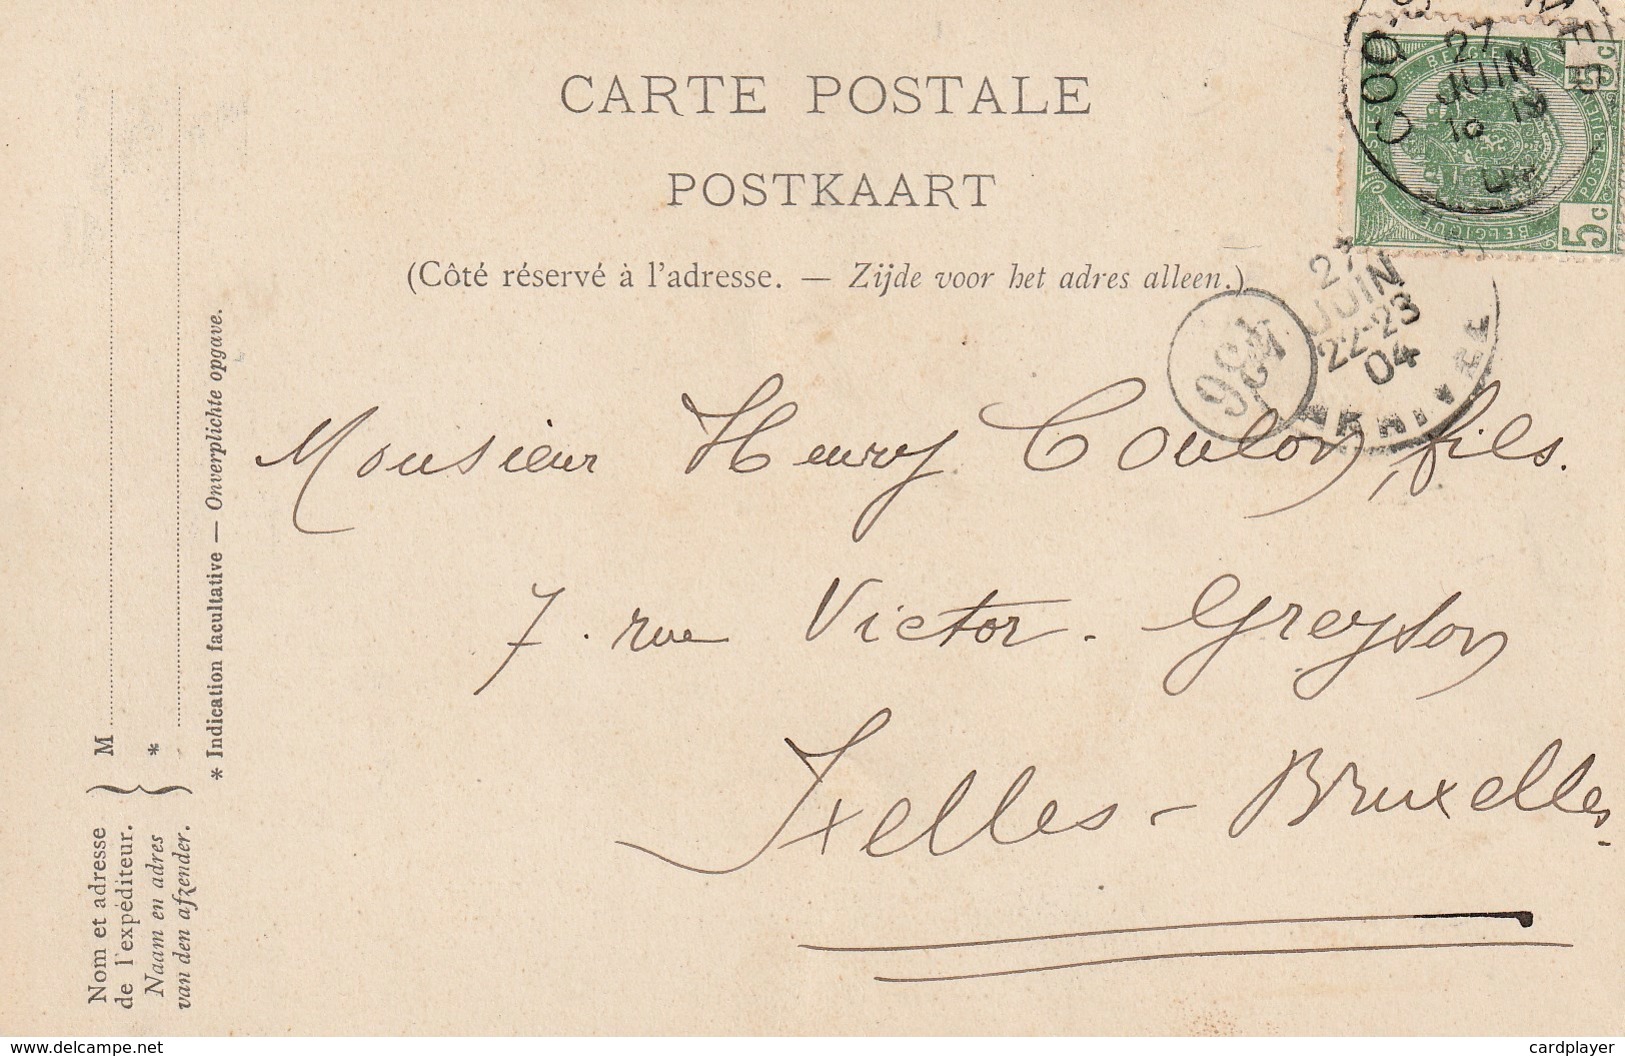 CARTE POSTALE
POSTKAART
(Côté réservé à l'adresse. — Zijde voor het adres alleen.)
27
JUIN
18 19
04
BELGIE
POSTERIJEN
BELGIQUE
POSTES
5c
5c
27
JUIN
22-23
04
436
Monsieur Henry Coulon, fils.
7. rue Victor. Greyson
Ixelles - Bruxelles.
Nom et adresse
de l'expéditeur.
Naam en adres
van den afzender.
M
*
* Indication facultative — Onverplichte opgave.
www.delcampe.net
cardplayer